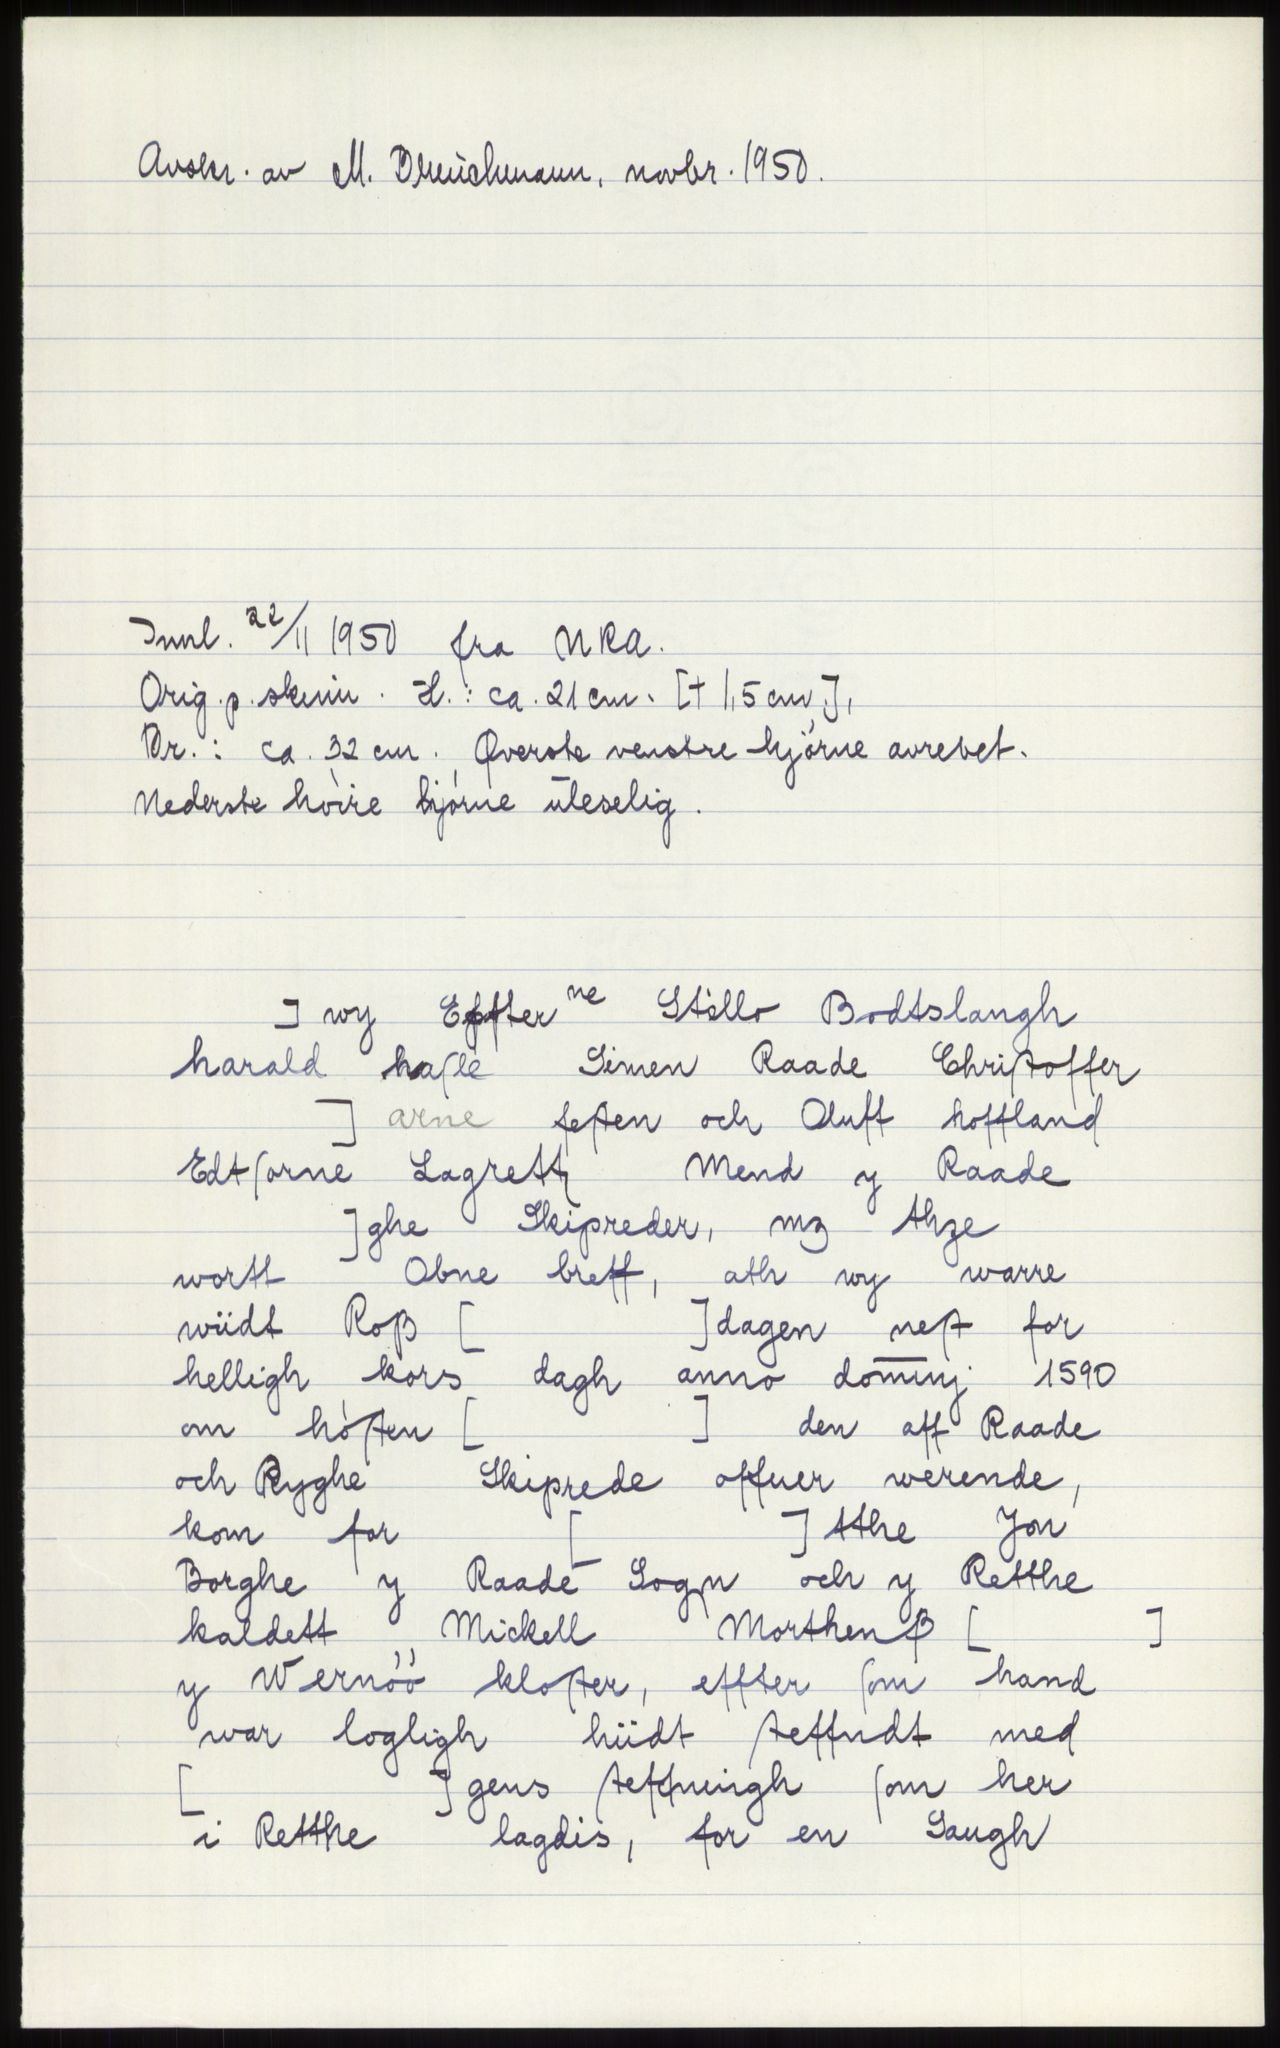 Avskr. av M. Breuchmann, novbr. 1950.
Innl. 22/11 1950 fra NRA.
Orig. p. skinn. H.: ca. 21 cm. [+ 1,5 cm],
Br.: ca. 32 cm. Øverste venstre hjørne avrevet.
Nederste høire hjørne uleselig.
] wy Effter ne Stillo Bodtslangh
harald haſle Simen Raade Chriſtoffer
] arne teſten och Oluff hoffland
Edtſorne Lagrett Mend y Raade
]ghe Skipreder, mz thze
wortt Obne breff, ath wy warre
wüdt Roß [ ]dagen neſt for
helligh kors dagh anno dominj 1590
om höſten [ ] den aff Raade
och Ryghe Skiprede offuer werende,
kom for [ ] tthe Jon
Borghe y Raade Sogn och y Retthe
kaldett Mickell Morthenß [ ]
y Wernöö kloſter, effter ſom hand
war logligh hüdt ſteffndt med
[ ]gens ſteffningh ſom her
i Retthe lagdis, for en Saugh